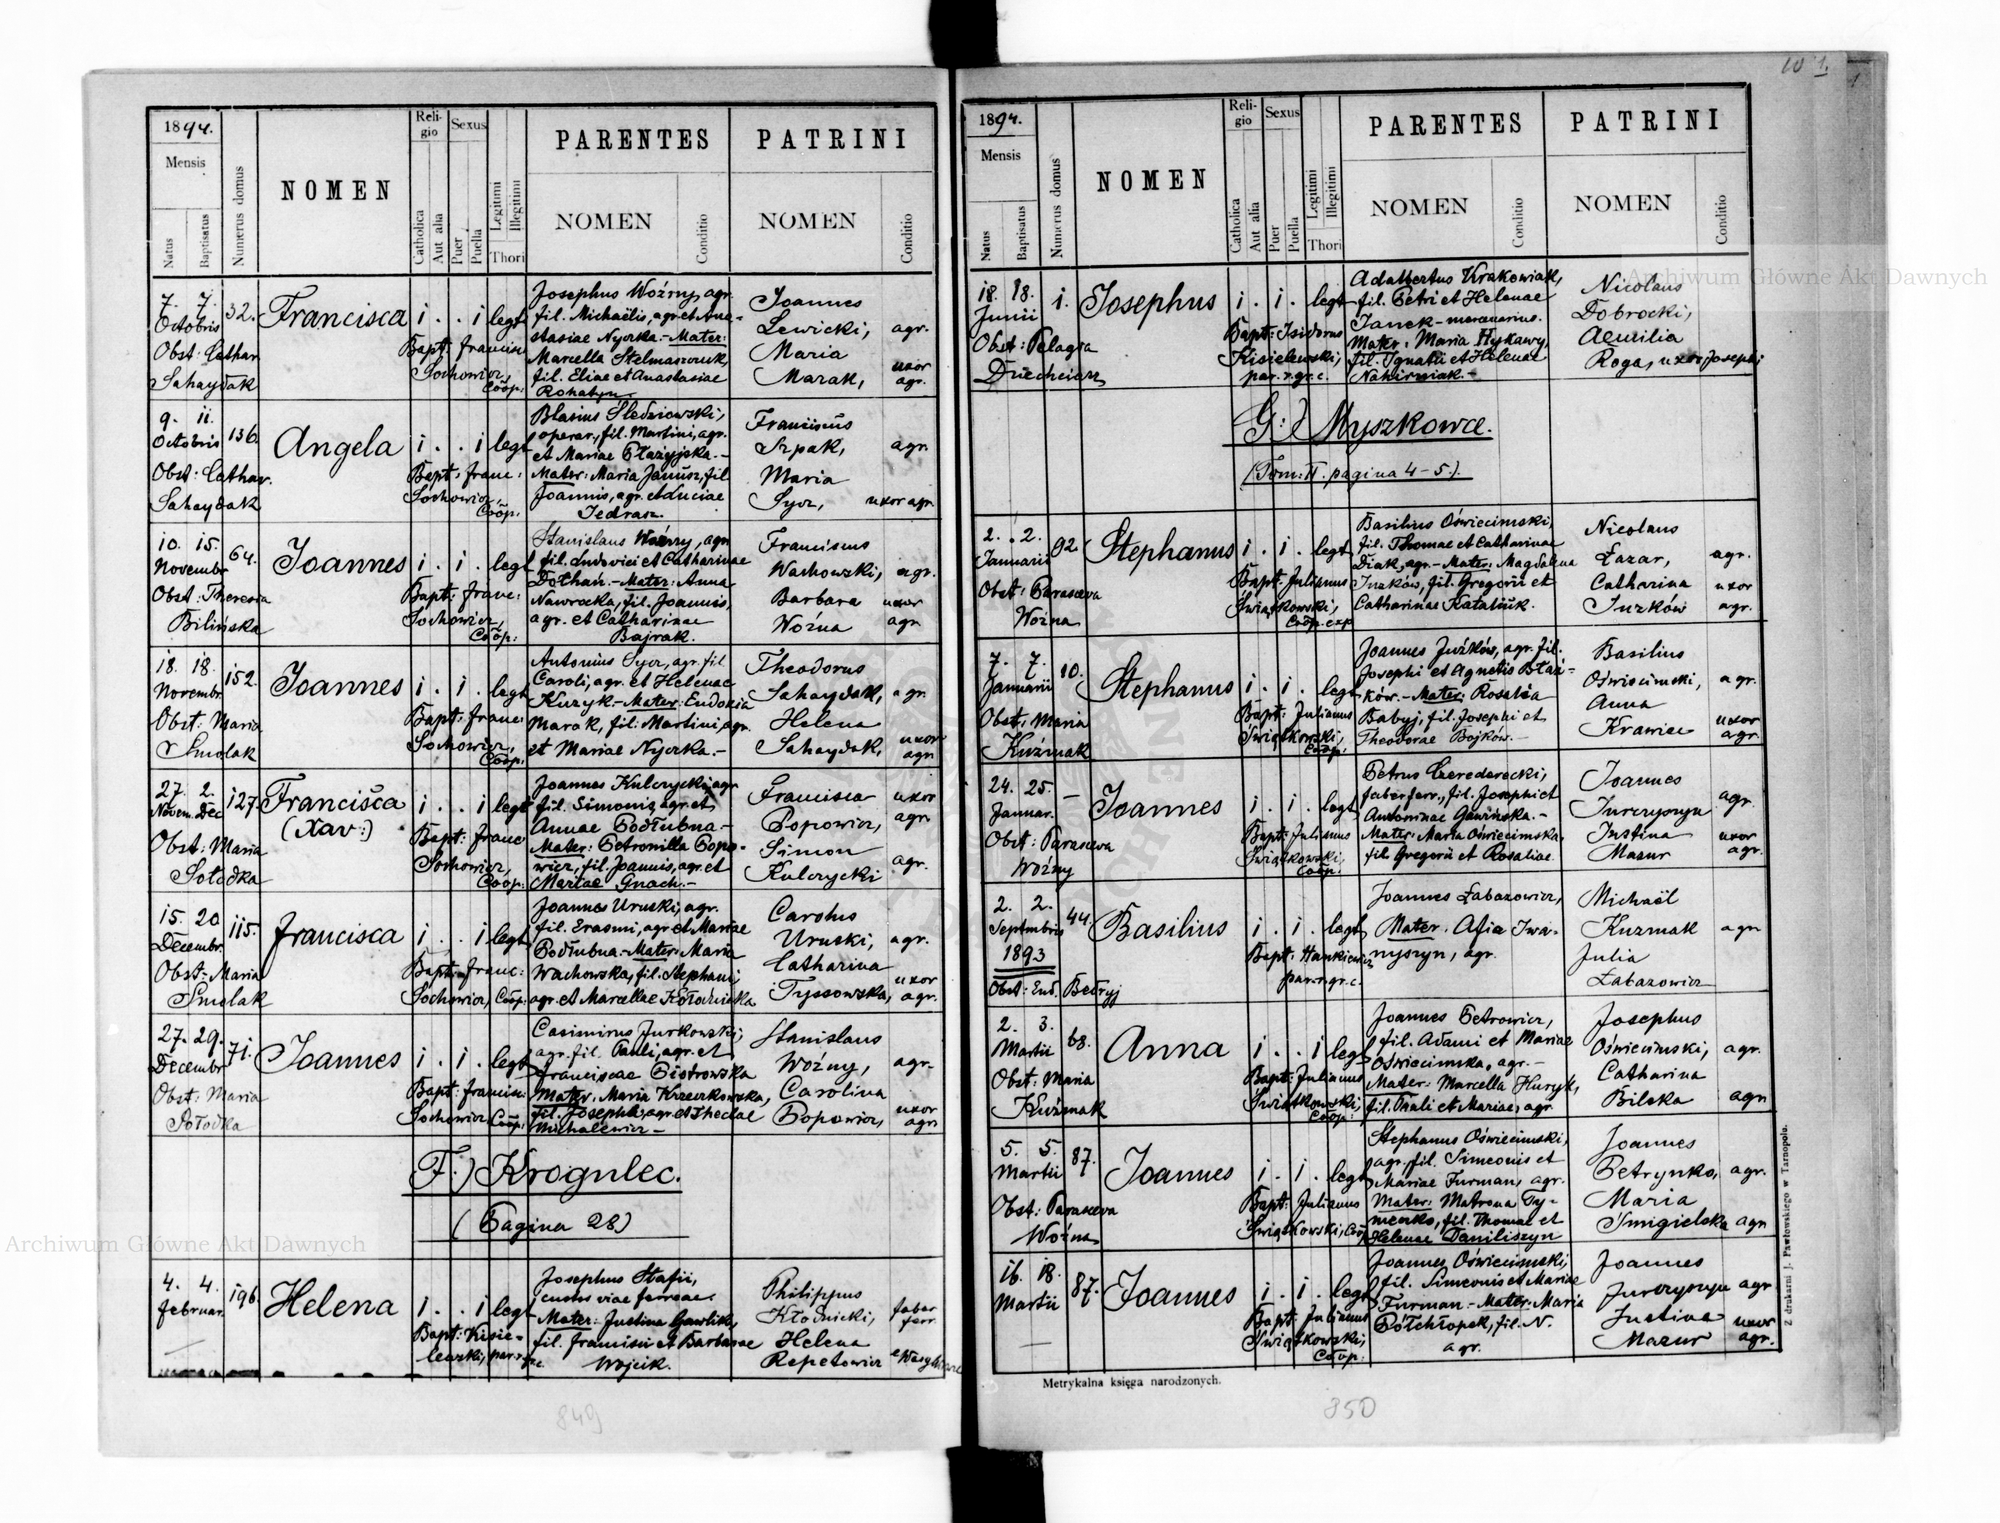 1894.
Mensis
Natus
Baptisatus
Numerus domus
NOMEN
Religio
Catholica
Aut alia
Sexus
Puer
Puella
Legitimi
Illegitimi
Thori
PARENTES
NOMEN
Conditio
PATRINI
NOMEN
Conditio
7. 7. 32. Francisca i . . i legt
Octobris
Obst: Cathar.
Sahaydak
Bapt: Francisc
Sochowicz,
Coop:
Josephus Woźny, agr.
fil. Michaëlis, agr. et Ana-
stasiae Nyczka.- Mater:
Marcella Stelmaszczuk,
fil. Eliae et Anastasiae
Rohatyn.
Joannes
Lewicki, agr.
Maria
Marak, uxor
agr.
9. 11. 136. Angela i . . i legt
Octobris
Obst: Cathar.
Sahaydak
Bapt: Franc:
Sochowicz,
Coop:
Blasius Śledziowski,
operar., fil. Martini, agr.
et Mariae
Mater: Maria Janusz, fil
Joannis, agr. et Luciae
Jedrasz.
Franciscus
Szpak, agr.
Maria
Syoz, uxor agr.
10. 15. 64. Joannes i . i . legt
Novembr
Obst: Theresia
Bilińska
Bapt: Franc:
Sochowicz,
Coop:
Stanislaus Woźny, agr
fil. Ludovici et Catharinae
Dothan.- Mater: Anna
Nawrocka, fil. Joannis,
agr. et Catharinae
Bajrak.
Franciscus
Wachowski, agr.
Barbara uxor
Woźna agr
18. 18. 152. Joannes i . i . legt
Novembr.
Obst: Maria
Smolak
Bapt: Franc:
Sochowicz,
Coop:
Antonius Syoz, agr. fil.
Caroli, agr. et Helenae
Kuzyk.- Mater: Eudokia
Marak, fil. Martini, agr.
et Mariae Nyczka.-
Theodorus
Sahaydak, agr.
Helena
Sahaydak, uxor
agr.
27. 2. 127. Francisca i . . i legt
Novem. Dec (Xav:)
Obst: Maria
Sołodka
Bapt: Franc:
Sochowicz,
Coop:
Joannes Kulczycki, agr
fil. Simonis, agr. et
Annae Podłubna-
Mater: Petronilla Popo-
wicz, fil. Joannis, agr. et
Mariae Gnach.-
Francisca uxor
Popowicz, agr.
Simon
Kulczycki agr.
15. 20 115. Francisca i . . i legt
Decembr.
Obst: Maria
Smolak
Baptism Franc:
Sochowicz, Coop:
Joannes Uruski, agr.
fil. Erasmi, agr. et Mariae
Podłubna-Mater: Maria
Wachowska, fil. Stephani
agr. et Marcellae Kołodnicka
Carolus
Uruski, agr.
Catharina
Tyssowska, uxor
agr.
27. 29. 71. Joannes i . i . legt
Decembr
Obst: Maria
Sołodka
Bapt: Francisc:
Sochowicz, Coop:
Casimirus Jurkowski,
agr. fil. Pauli, agr. et
Franciscae Piotrowska
Mater: Maria Krzeczkowska,
fil. Josephi, agr. et Theclae
Michalewicz -
Stanislaus
Woźny, agr.
Carolina
Popowicz, uxor
agr
F.) Krogulec.
(Pagina 28)
4. 4. 196. Helena i . . i legt
Februar.
Bapt: Kisie-
lewski, par. r. gr. c.
Josephus Stafij,
custos viae ferreae.
Mater: Justina Gawlik,
fil. Francisci et Barbarae
Wojcik.
Philippus
Kłodnicki, faber
ferr.
Helena
Repetowicz
849
10 1.
1894.
Mensis
Natus
Baptisatus
Numerus domus
NOMEN
Religio
Catholica
Aut alia
Sexus
Puer
Puella
Legitimi
Illegitimi
Thori
PARENTES
NOMEN
Conditio
PATRINI
NOMEN
Conditio
18. 18. 1. Josephus i . i . legt
Junii
Obst: Pelagia
Bapt: Isidorus
Kisielewski,
par. r. gr. c.
Adalbertus Krakowiak,
fil. Petri et Helenae
Janek - mercenarius.
Mater: Maria Hykawy,
fil. Ignatii et Helenae
Nahirniak.-
Nicolaus
Dobrocki,
Aemilia
Roga, uxor Josephi
G.) Myszkowce.
(Tom: II. pagina 4-5.).
2. 2. 92. Stephanus i . i . legt
Januarii
Obst: Parasceva
Woźna
Bapt: Julianus
Świątkowski,
Coop. exp
Basilius Oświecimski,
fil. Thomae et Catharinae
Diak, agr.- Mater: Magdalena
Juzków, fil. Gregorii et
Catharinae Kataluk.
Nicolaus
Łazar, agr.
Catharina uxor
Juzków agr.
7. 7. 10. Stephanus i . i . legt
Januarii
Obst: Maria
Kuźmak
Bapt: Julianus
Świątkowski,
Coop:
Joannes Juźków, agr. fil.
Josephi et Agnetis Błaż-
ków.- Mater: Rosalia
Babyj, fil. Josephi et
Theodorae Bojków.-
Basilius
Oświecimski, agr.
Anna
Krawiec uxor
agr.
24. 25. - Joannes i . i . legt
Januar.
Obst: Parasceva
Woźny
Bapt: Julianus
Świątkowski,
Coop:
Petrus Czerederecki,
faber ferr., fil. Josephi et
Antoninae Gawińska.-
Mater: Maria Oświecimska
fil Gregorii et Rosaliae.
Joannes
Jurczyszyn agr.
Justina uxor
Mazur agr.
2. 2. 44. Basilius i . i . legt
Septembris
1893
Obst: Eud. Bedryj
Bapt. Hankiewicz
par. r. gr. c.
Joannes Łabazowicz,
Mater: Afia Iwa-
nyszyn, agr.
Michaël
Kuzmak agr
Julia
Łabazowicz
2. 3. 68. Anna i . . i legt
Martii
Obst: Maria
Kuźmak
Bapt: Julianus
Swiątkowski,
Coop:
Joannes Petrowicz,
fil. Adami et Mariae
Oświecimska, agr.-
Mater: Marcella Huryk,
fil. Pauli et Mariae, agr
Josephus
Oświecimski, agr.
Catharina
Bilska agr
5. 5. 87. Joannes i . i . legt
Martii
Obst: Parasceva
Woźna
Bapt: Julianus
Swiątkowski, Coop
Stephanus Oświecimski,
agr. fil. Simeonis et
Mariae Furman, agr.
Mater: Matrona Ty-
meczko, fil. Thomae et
Helenae Daniliszyn
Joannes
Petrynko, agr.
Maria
Smigielska agr
16. 18. 87. Joannes i . i . legt
Martii
Bapt: Julianus
Swiątkowski,
Coop:
Joannes Oświecimski,
fil. Simeonis et Mariae
Furman.- Mater: Maria
Półchłopek, fil. N.
agr.
Joannes
Jurczyszyn agr
Justina uxor
Mazur agr.
Metrykalna księga narodzonych.
Z drukarni J. Pawłowskiego w Tarnopolu.
850
Archiwum Główne Akt Dawnych
Archiwum Główne Akt Dawnych